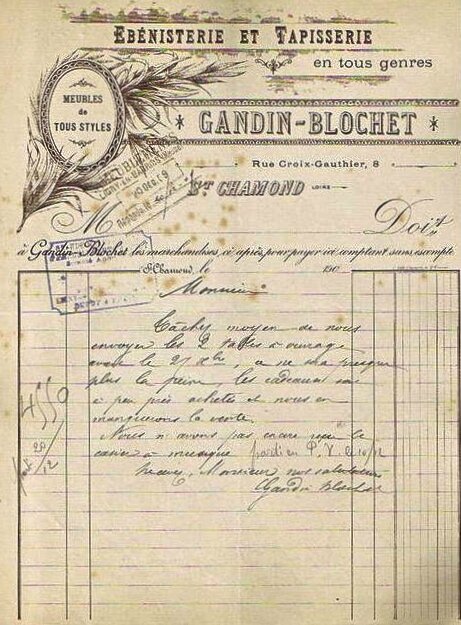 EBÉNISTERIE ET TAPISSERIE
en tous genres
MEUBLES
de
TOUS STYLES
GANDIN-BLOCHET
Rue Croix-Gauthier, 8
St CHAMOND LOIRE
M Doit
à Gandin-Blochet les marchandises ci après, pour payer ici comptant sans escompte
St Chamond, le 190
Monsieur
Tâchez moyen de nous
envoyer les 2 tables à ouvrage
avant le 21 Xbre, ce ne sera presque
plus la peine, les cadeaux
à peu près achetés et nous en
manquerons la vente.
Nous n'avons pas encore reçu le
casier à musique parti en P. V. le 10/12
Recevez, Monsieur nos salutations
Gandin Blochet
20
12